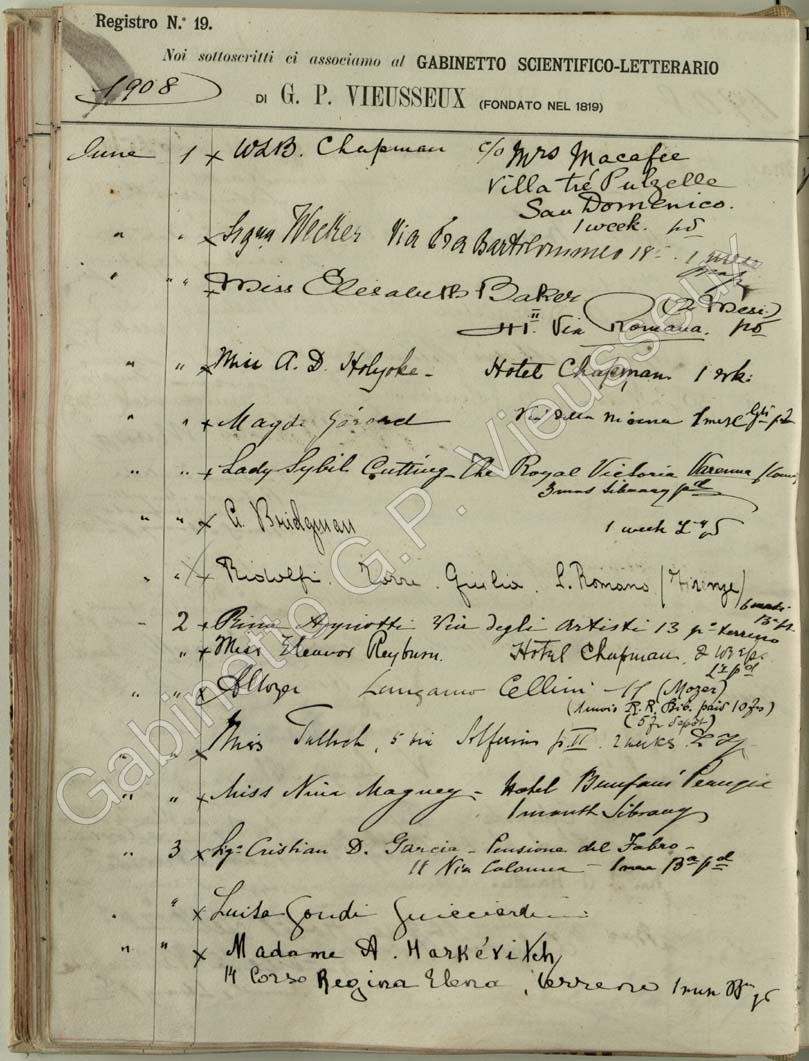 Registro N.° 19.
Noi sottoscritti ci associamo al GABINETTO SCIENTIFICO-LETTERARIO
1908
DI G. P. VIEUSSEUX (FONDATO NEL 1819)
June 1 x W L B. Chapman c/o Mrs Macafee
Villa tré Pulzelle
San Domenico.
1 week. pd
" " x Wecker Via Fra Bartolommeo 18 1 mese
" " x Miss Elisabeth Baker (2 Mesi.)
Via Romana. pd
" " x Miss A. D. Holyoke - Hotel Chapman 1 wk.
" " x Magda Via della 1 mese
" " x Lady Sybil Cutting - The Royal Victoria Varenna
3 mos library pd
" " x Bridgman 1 week
" " x Ridolfi. Torre. Giulia. L. Romano (Firenze)
" 2 x Via degli Artisti 13 po terreno
" x Miss Eleanor Reyburn. Hotel Chapman. 2 weeks.
" " x Lungarno Cellini (Mozer)
R. R. Bib. paid 10 frs)
(5 fr depot)
" " x Miss Tulloch, 5 via Solferino p. II. 2 weeks.
" " x Miss Nina Magney - Hotel Bonfani Perugia
1 month library
" 3 x Cristian D. Garcia - Pensione del Fabro -
11 Via Colonna - 1 mese pd
" x Luisa Guicciardini
" " x Madame A. Markévitch
14 Corso Regina Elena, terreno 1 mese
Gabinetto G. P. Vieusseux